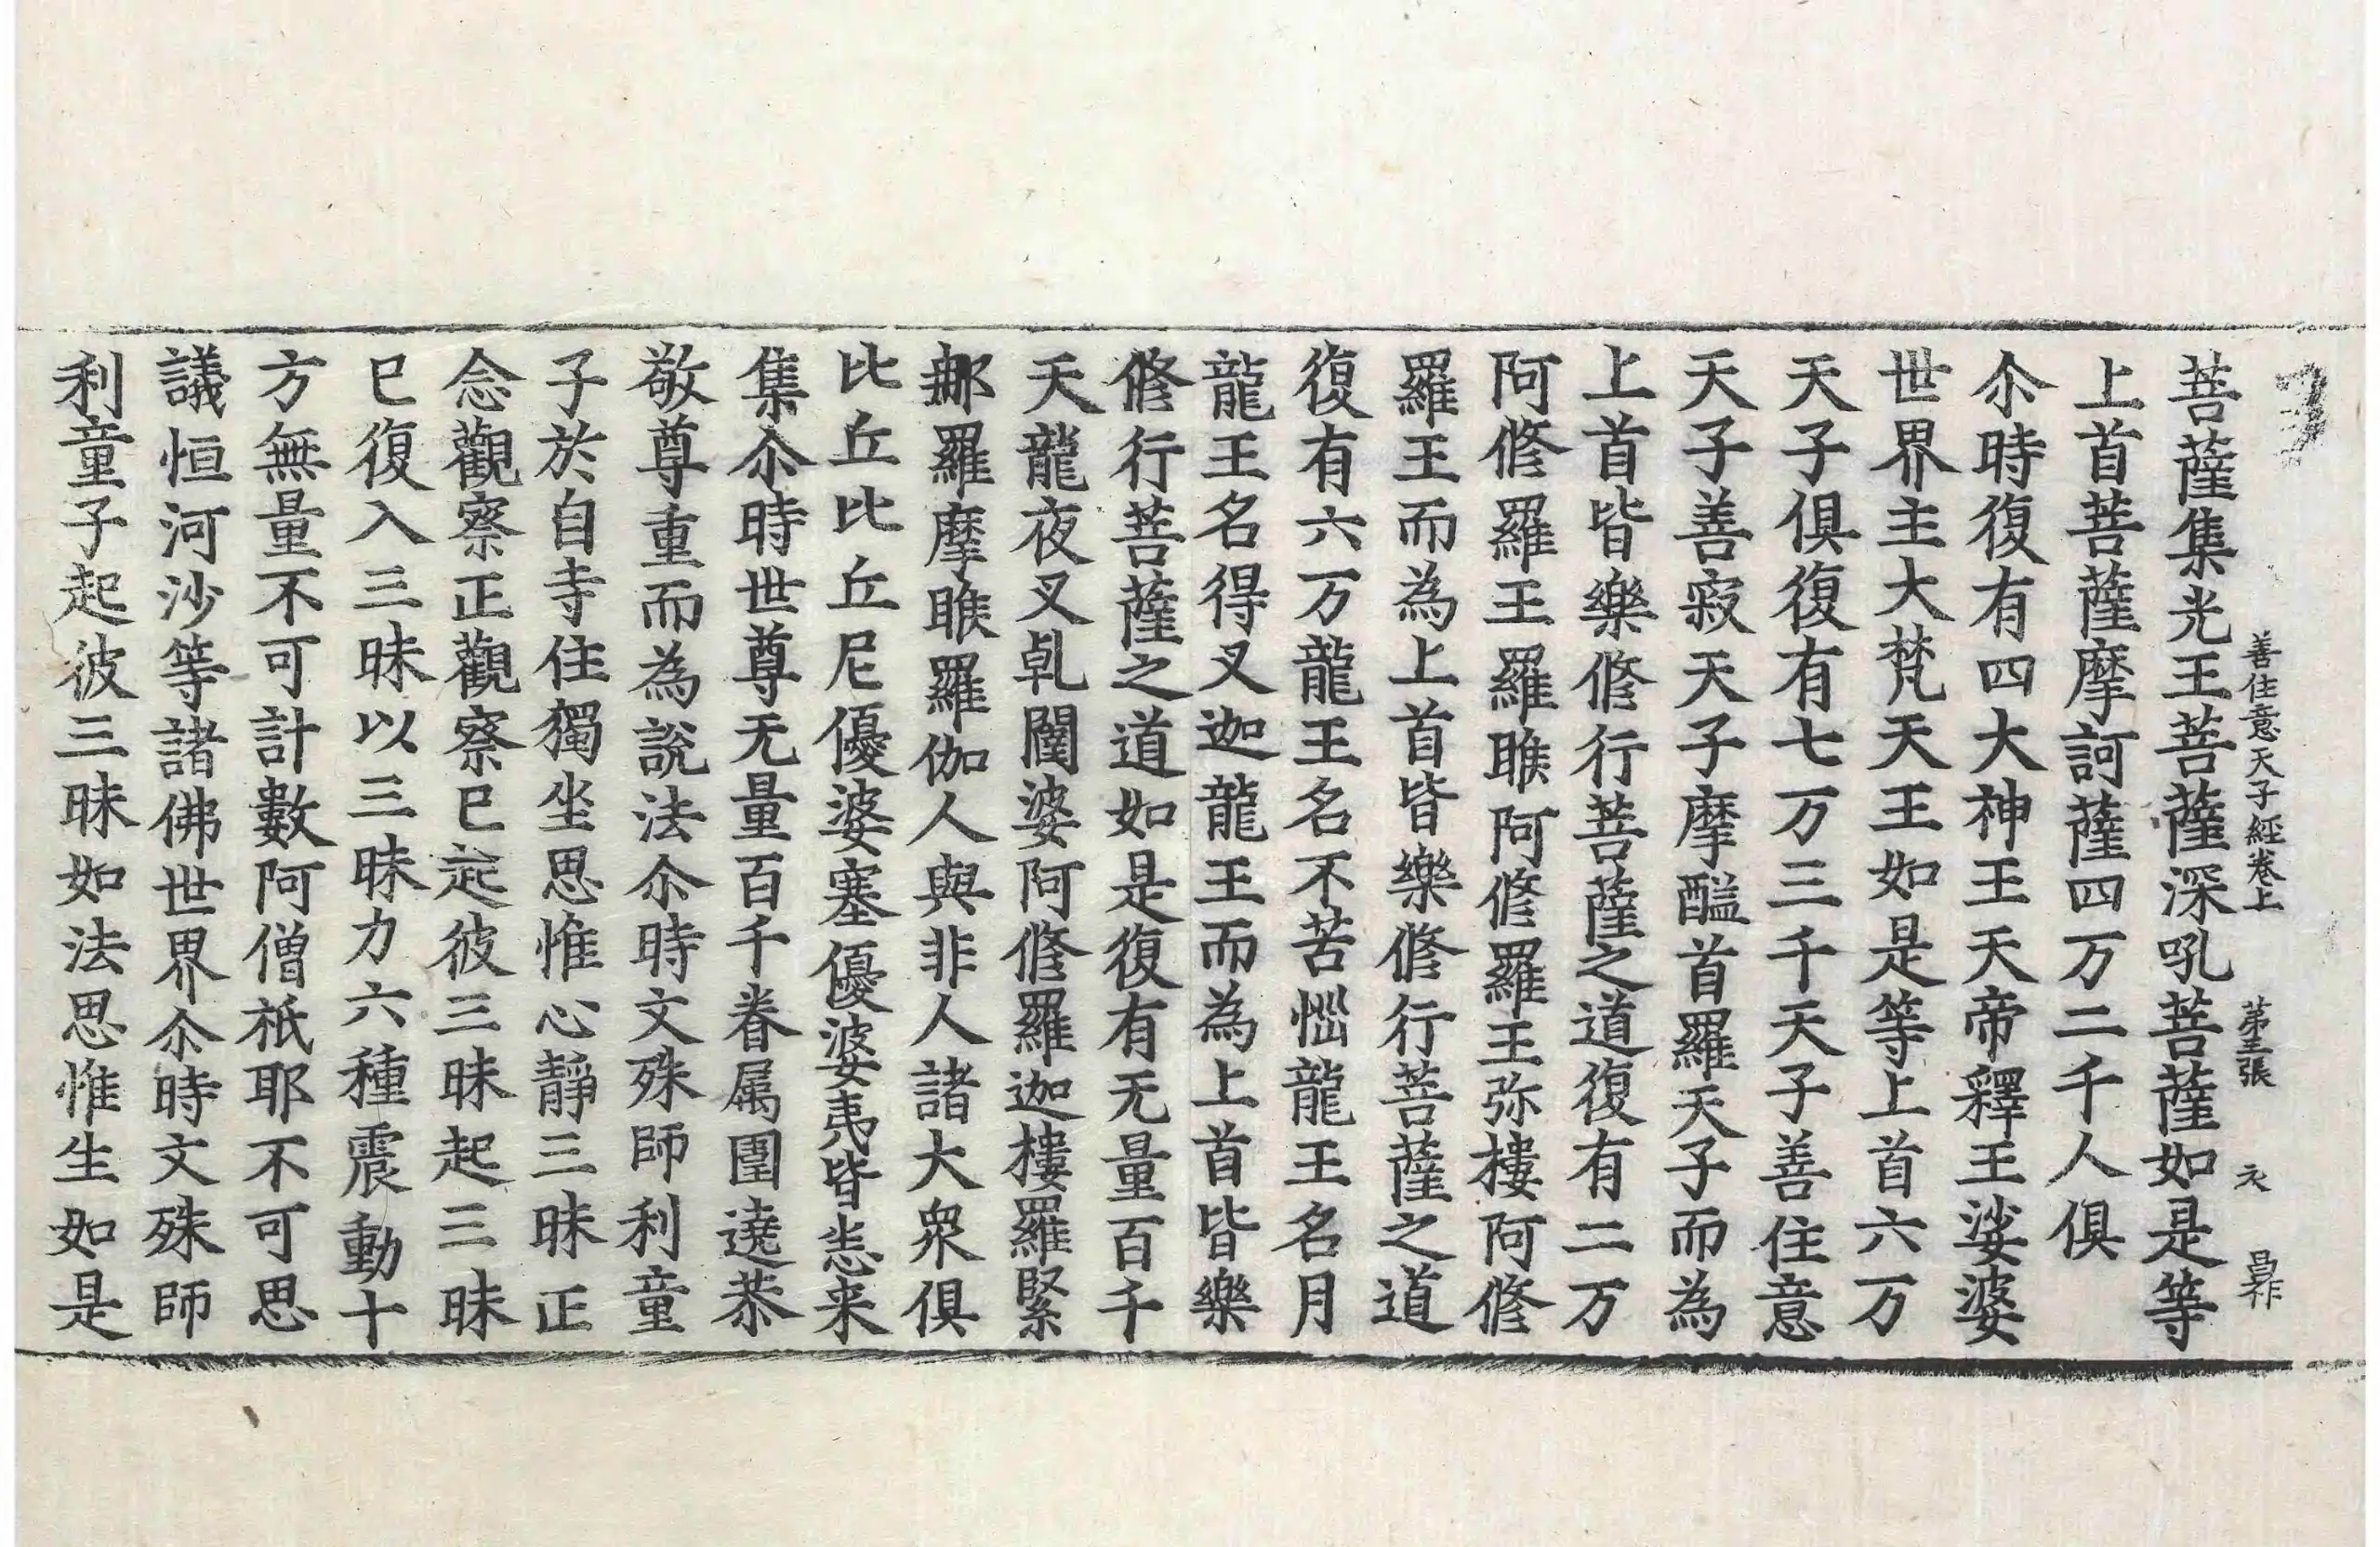 善住意天子經卷上 第三張 元 昌作
菩薩集光王菩薩深吼菩薩如是等
上首菩薩摩訶薩四万二千人俱
尒時復有四大神王天帝釋王娑婆
世界主大梵天王如是等上首六万
天子俱復有七万三千天子善住意
天子善寂天子摩醯首羅天子而為
上首皆樂修行菩薩之道復有二万
阿修羅王羅睺阿修羅王弥樓阿修
羅王而為上首皆樂修行菩薩之道
復有六万龍王名不苦惱龍王名月
龍王名得叉迦龍王而為上首皆樂
修行菩薩之道如是復有无量百千
天龍夜叉乹闥婆阿修羅迦樓羅緊
那羅摩睺羅伽人與非人諸大衆俱
比丘比丘尼優婆塞優婆夷皆悉来
集尒時世尊无量百千眷属圍遶恭
敬尊重而為說法尒時文殊師利童
子於自寺住獨坐思惟心靜三昧正
念觀察正觀察已起彼三昧起三昧
已復入三昧以三昧力六種震動十
方無量不可計數阿僧祇耶不可思
議恒河沙等諸佛世界尒時文殊師
利童子起彼三昧如法思惟生如是